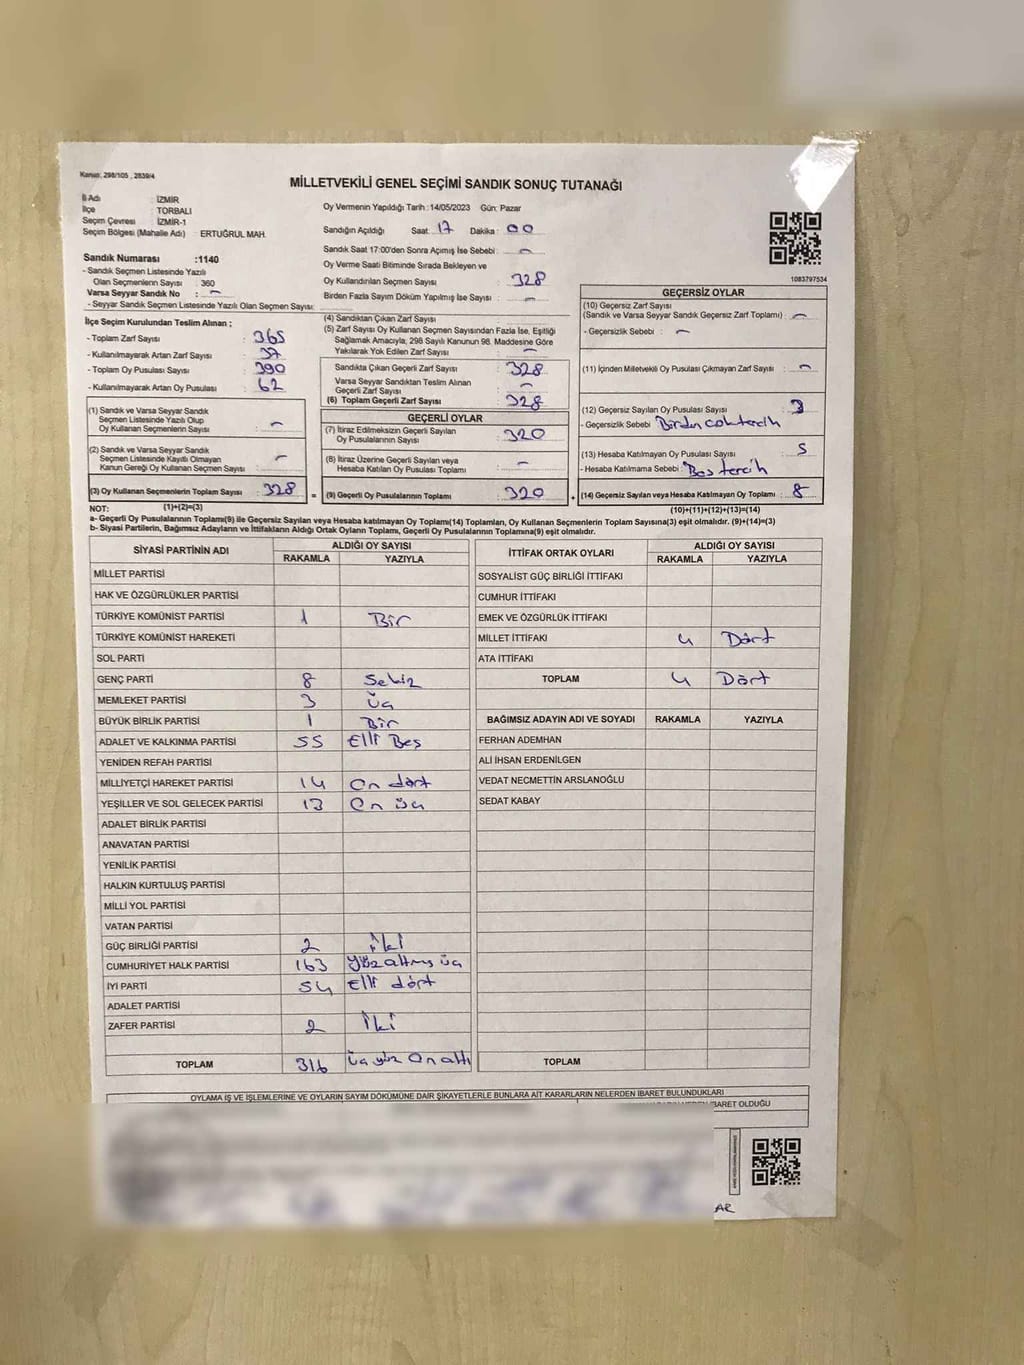 Kanun: 298/105 , 2839/4
MİLLETVEKİLİ GENEL SEÇİMİ SANDIK SONUÇ TUTANAĞI
İl Adı : İZMİR
İlçe : TORBALI
Seçim Çevresi : İZMİR-1
Seçim Bölgesi (Mahalle Adı) : ERTUĞRUL MAH.
Oy Vermenin Yapıldığı Tarih :14/05/2023 Gün: Pazar
Sandığın Açıldığı Saat: 17 Dakika: 00
Sandık Saat 17:00'den Sonra Açımış İse Sebebi : -
Oy Verme Saati Bitiminde Sırada Bekleyen ve
Oy Kullandırılan Seçmen Sayısı : 328
Birden Fazla Sayım Döküm Yapılmış İse Sayısı : -
1083797534
Sandık Numarası :1140
- Sandık Seçmen Listesinde Yazılı
Olan Seçmenlerin Sayısı : 360
Varsa Seyyar Sandık No : -
- Seyyar Sandık Seçmen Listesinde Yazılı Olan Seçmen Sayısı:
İlçe Seçim Kurulundan Teslim Alınan ;
- Toplam Zarf Sayısı : 365
- Kullanılmayarak Artan Zarf Sayısı : 37
- Toplam Oy Pusulası Sayısı : 390
- Kullanılmayarak Artan Oy Pusulası : 62
(1) Sandık ve Varsa Seyyar Sandık
Seçmen Listesinde Yazılı Olup
Oy Kullanan Seçmenlerin Sayısı : -
(2) Sandık ve Varsa Seyyar Sandık
Seçmen Listesinde Kayıtlı Olmayan
Kanun Gereği Oy Kullanan Seçmen Sayısı : -
(3) Oy Kullanan Seçmenlerin Toplam Sayısı : 328
(4) Sandıktan Çıkan Zarf Sayısı
(5) Zarf Sayısı Oy Kullanan Seçmen Sayısından Fazla İse, Eşitliği
Sağlamak Amacıyla, 298 Sayılı Kanunun 98. Maddesine Göre
Yakılarak Yok Edilen Zarf Sayısı : -
Sandıkta Çıkan Geçerli Zarf Sayısı : 328
Varsa Seyyar Sandıktan Teslim Alınan
Geçerli Zarf Sayısı : -
(6) Toplam Geçerli Zarf Sayısı : 328
GEÇERLİ OYLAR
(7) İtiraz Edilmeksizin Geçerli Sayılan
Oy Pusulalarının Sayısı : 320
(8) İtiraz Üzerine Geçerli Sayılan veya
Hesaba Katılan Oy Pusulası Toplamı : -
= (9) Geçerli Oy Pusulalarının Toplamı : 320
GEÇERSİZ OYLAR
(10) Geçersiz Zarf Sayısı
(Sandık ve Varsa Seyyar Sandık Geçersiz Zarf Toplamı) : -
- Geçersizlik Sebebi : -
(11) İçinden Milletvekili Oy Pusulası Çıkmayan Zarf Sayısı : -
(12) Geçersiz Sayılan Oy Pusulası Sayısı : 3
- Geçersizlik Sebebi
(13) Hesaba Katılmayan Oy Pusulası Sayısı : 5
- Hesaba Katılmama Sebebi : Bos tercih
+ (14) Geçersiz Sayılan veya Hesaba Katılmayan Oy Toplamı : 8
NOT: (1)+(2)=(3) (10)+(11)+(12)+(13)=(14)
a- Geçerli Oy Pusulalarının Toplamı(9) ile Geçersiz Sayılan veya Hesaba katılmayan Oy Toplamı(14) Toplamları, Oy Kullanan Seçmenlerin Toplam Sayısına(3) eşit olmalıdır. (9)+(14)=(3)
b- Siyasi Partilerin, Bağımsız Adayların ve İttifakların Aldığı Ortak Oyların Toplamı, Geçerli Oy Pusulalarının Toplamına(9) eşit olmalıdır.
SİYASİ PARTİNİN ADI ALDIĞI OY SAYISI
RAKAMLA YAZIYLA
MİLLET PARTİSİ
HAK VE ÖZGÜRLÜKLER PARTİSİ
TÜRKİYE KOMÜNİST PARTİSİ 1 Bir
TÜRKİYE KOMÜNİST HAREKETİ
SOL PARTİ
GENÇ PARTİ 8 Sekiz
MEMLEKET PARTİSİ 3 Üç
BÜYÜK BİRLİK PARTİSİ 1 Bir
ADALET VE KALKINMA PARTİSİ 55 Elli Beş
YENİDEN REFAH PARTİSİ
MİLLİYETÇİ HAREKET PARTİSİ 14 On dört
YEŞİLLER VE SOL GELECEK PARTİSİ 13 On üç
ADALET BİRLİK PARTİSİ
ANAVATAN PARTİSİ
YENİLİK PARTİSİ
HALKIN KURTULUŞ PARTİSİ
MİLLİ YOL PARTİSİ
VATAN PARTİSİ
GÜÇ BİRLİĞİ PARTİSİ 2 İki
CUMHURİYET HALK PARTİSİ 163 Yüz altmış üç
İYİ PARTİ 54 Elli dört
ADALET PARTİSİ
ZAFER PARTİSİ 2 İki
TOPLAM 316 Üç yüz On altı
İTTİFAK ORTAK OYLARI ALDIĞI OY SAYISI
RAKAMLA YAZIYLA
SOSYALİST GÜÇ BİRLİĞİ İTTİFAKI
CUMHUR İTTİFAKI
EMEK VE ÖZGÜRLÜK İTTİFAKI
MİLLET İTTİFAKI 4 Dört
ATA İTTİFAKI
TOPLAM 4 Dört
BAĞIMSIZ ADAYIN ADI VE SOYADI RAKAMLA YAZIYLA
FERHAN ADEMHAN
ALİ İHSAN ERDENİLGEN
VEDAT NECMETTİN ARSLANOĞLU
SEDAT KABAY
TOPLAM
OYLAMA İŞ VE İŞLEMLERİNE VE OYLARIN SAYIM DÖKÜMÜNE DAİR ŞİKAYETLERLE BUNLARA AİT KARARLARIN NELERDEN İBARET BULUNDUKLARI
İBARET OLDUĞU
AR